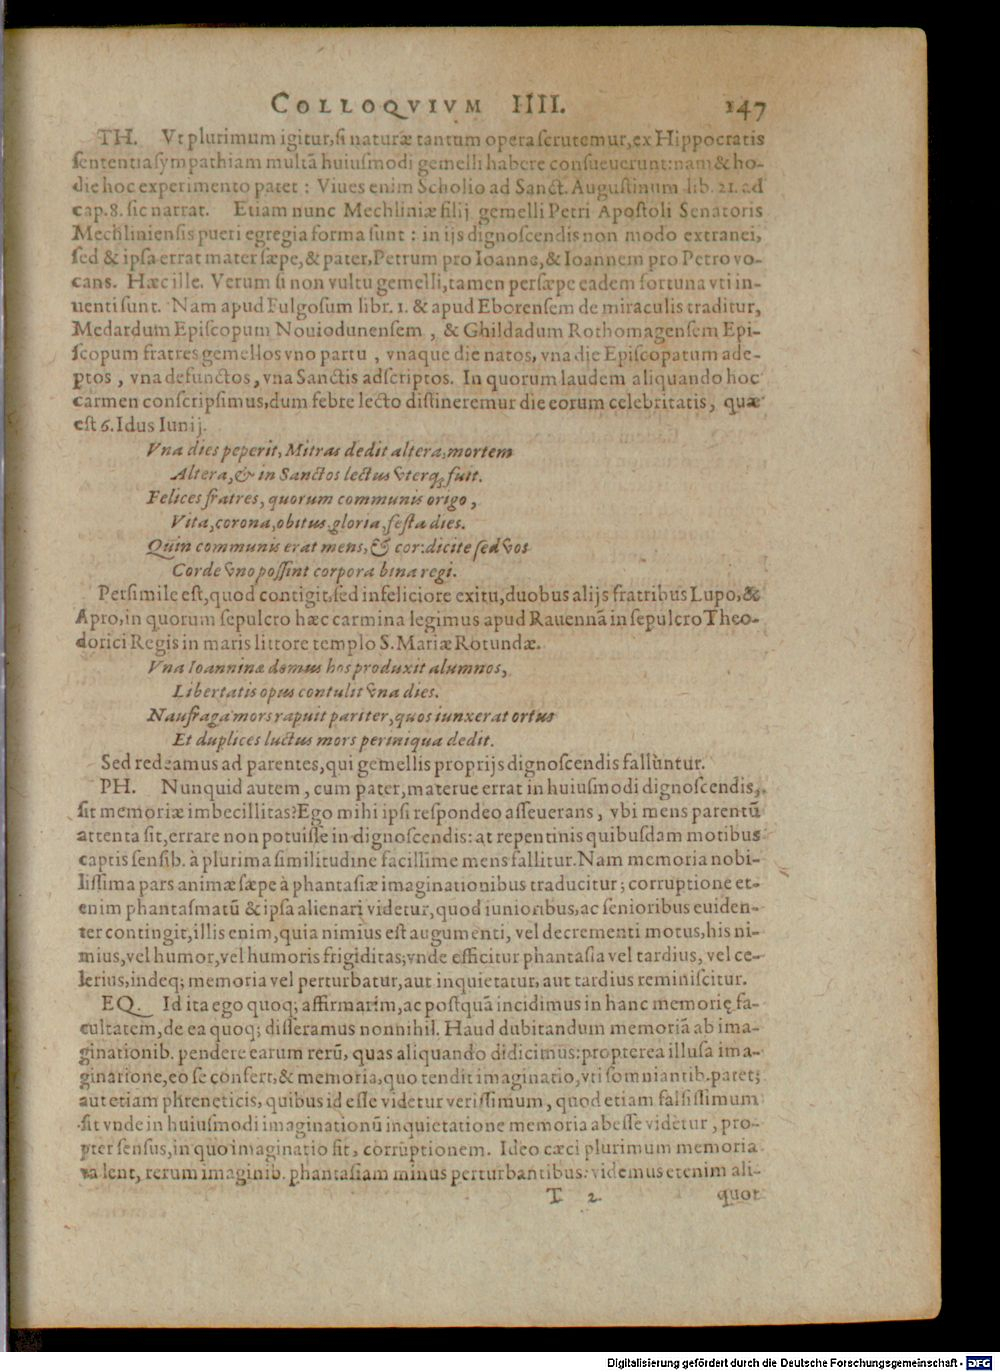 COLLOQVIVM IIII. 147
TH. Vt plurimum igitur, si naturæ tantum opera scrutemur, ex Hippocratis
sententia sympathiam multā huiusmodi gemelli habere consueuerunt: nam & ho-
die hoc experimento patet : Viues enim Scholio ad Sanct. Augustinum lib. 21. ad
cap. 8. sic narrat. Etiam nunc Mechliniæ filij gemelli Petri Apostoli Senatoris
Mechliniensis pueri egregia forma sunt : in ijs dignoscendis non modo extranei,
sed & ipsa errat mater sæpe, & pater, Petrum pro Ioanne, & Ioannem pro Petro vo-
cans. Hæc ille. Verum si non vultu gemelli, tamen persæpe eadem fortuna vti in-
uenti sunt. Nam apud Fulgosum libr. 1. & apud Eborensem de miraculis traditur,
Medardum Episcopum Nouiodunensem , & Ghildadum Rothomagensem Epi-
scopum fratres gemellos vno partu , vnaque die natos, vna die Episcopatum ade-
ptos , vna defunctos, vna Sanctis adscriptos. In quorum laudem aliquando hoc
carmen conscripsimus, dum febre lecto distineremur die eorum celebritatis, quæ
est 6. Idus Iunij.
Vna dies peperit, Mitras dedit altera, mortem
Altera, & in Sanctos lectus vterq; fuit.
Felices fratres, quorum communis origo ,
Vita, corona, obitus, gloria, festa dies.
Quin communis erat mens, & cor: dicite sed vos
Corde vno possint corpora bina regi.
Persimile est, quod contigit, sed infeliciore exitu, duobus alijs fratribus Lupo, &
Apro, in quorum sepulcro hæc carmina legimus apud Rauennā in sepulcro Theo-
dorici Regis in maris littore templo S. Mariæ Rotundæ.
Vna Ioannina domus hos produxit alumnos,
Libertatis opus contulit vna dies.
Naufraga mors rapuit pariter, quos iunxerat ortus
Et duplices luctus mors periniqua dedit.
Sed redeamus ad parentes, qui gemellis proprijs dignoscendis falluntur.
PH. Nunquid autem , cum pater, materue errat in huiusmodi dignoscendis,
sit memoriæ imbecillitas? Ego mihi ipsi respondeo asseuerans , vbi mens parentū
attenta sit, errare non potuisse in dignoscendis: at repentinis quibusdam motibus
captis sensib. à plurima similitudine facillime mens fallitur. Nam memoria nobi-
lissima pars animæ sæpe à phantasiæ imaginationibus traducitur ; corruptione et-
enim phantasmatū & ipsa alienari videtur, quod iunioribus, ac senioribus euiden-
ter contingit, illis enim, quia nimius est augumenti, vel decrementi motus, his ni-
mius, vel humor, vel humoris frigiditas; vnde efficitur phantasia vel tardius, vel ce-
lerius, indeq; memoria vel perturbatur, aut inquietatur, aut tardius reminiscitur.
EQ. Id ita ego quoq; affirmarim, ac postquā incidimus in hanc memorię fa-
cultatem, de ea quoq; disseramus nonnihil. Haud dubitandum memoriā ab ima-
ginationib. pendere earum rerū, quas aliquando didicimus: propterea illusa ima-
ginatione, eo se confert, & memoria, quo tendit imaginatio, vti somniantib. patet;
aut etiam phreneticis, quibus id esse videtur verissimum , quod etiam falsissimum
sit vnde in huiusmodi imaginationū inquietatione memoria abesse videtur , pro-
pter sensus, in quo imaginatio fit, corruptionem. Ideo cæci plurimum memoria
valent, rerum imaginib. phantasiam minus perturbantibus: videmus etenim ali-
T 2 quot
Digitalisierung gefördert durch die Deutsche Forschungsgemeinschaft - DFG